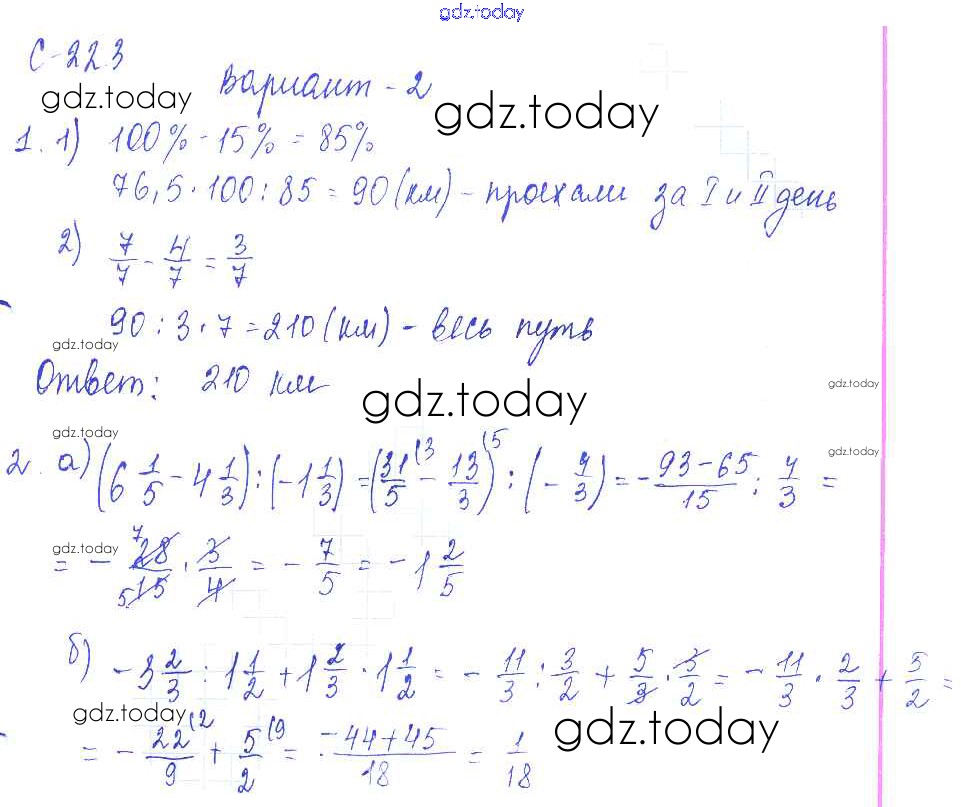 gdz.today
С-22.3
Вариант - 2
gdz.today
gdz.today
1. 1) 100% - 15% = 85%
76,5 · 100 : 85 = 90 (км) - проехали за I и II день
2) 7/7 - 4/7 = 3/7
90 : 3 · 7 = 210 (км) - весь путь
gdz.today
Ответ: 210 км
gdz.today
gdz.today
gdz.today
gdz.today
2. а) (6 1/5 - 4 1/3) : (-1 1/3) = (31/5 (3 - 13/3 (5) : (- 4/3) = - 93-65/15 : 4/3 =
gdz.today
= - 28/15 7 5 · 3/4 = - 7/5 = -1 2/5
б) -3 2/3 : 1 1/2 + 1 2/3 · 1 1/2 = - 11/3 : 3/2 + 5/3 · 3/2 = - 11/3 · 2/3 + 5/2 =
gdz.today
gdz.today
= - 22/9 (2 + 5/2 (9 = -44+45/18 = 1/18